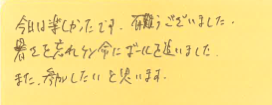 今日は楽しかったです。有難うございました。
暑さを忘れケン命にボールを追いました。
また、参加したいと思います。